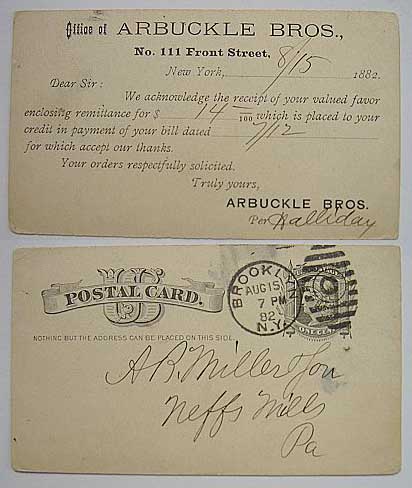 Office of ARBUCKLE BROS.,
No. 111 Front Street,
New York, 8/15 1882.
Dear Sir:
We acknowledge the receipt of your valued favor
enclosing remittance for $ 14 —/100 which is placed to your
credit in payment of your bill dated 7/12
for which accept our thanks.
Your orders respectfully solicited.
Truly yours,
ARBUCKLE BROS.
Per Halliday
US
POSTAL CARD.
NOTHING BUT THE ADDRESS CAN BE PLACED ON THIS SIDE.
BROOKLYN
AUG 15
7 PM
82
N.Y.
ONE CENT
A B Miller & Son
Neffs Mills
Pa